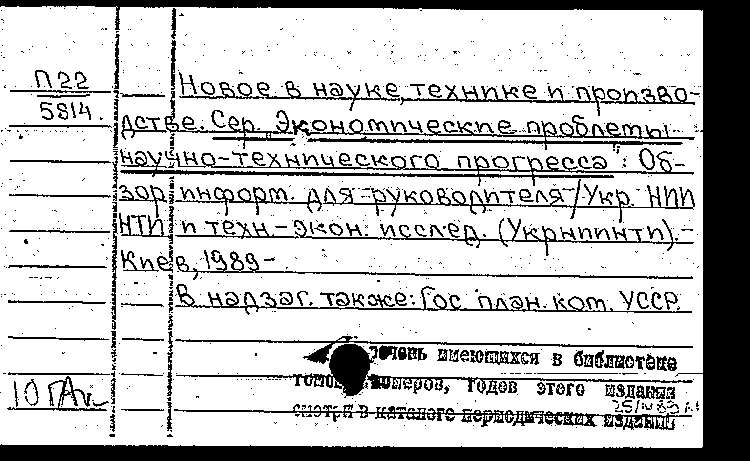 П 22
5814.
Новое в науке, технике и произво-
дстве. Сер. „Экономические проблемы
научно-технического прогресса": Об-
зор. информ. для руководителя / Укр. НИИ
НТИ и техн.-экон. исслед. (УкрНИИНТИ).-
Киев, 1989-
В надзаг. также: Гос. план. ком. УССР.
имеющихся в библиотеке
номеров, годов этого издания
смотри в каталоге периодических изданий